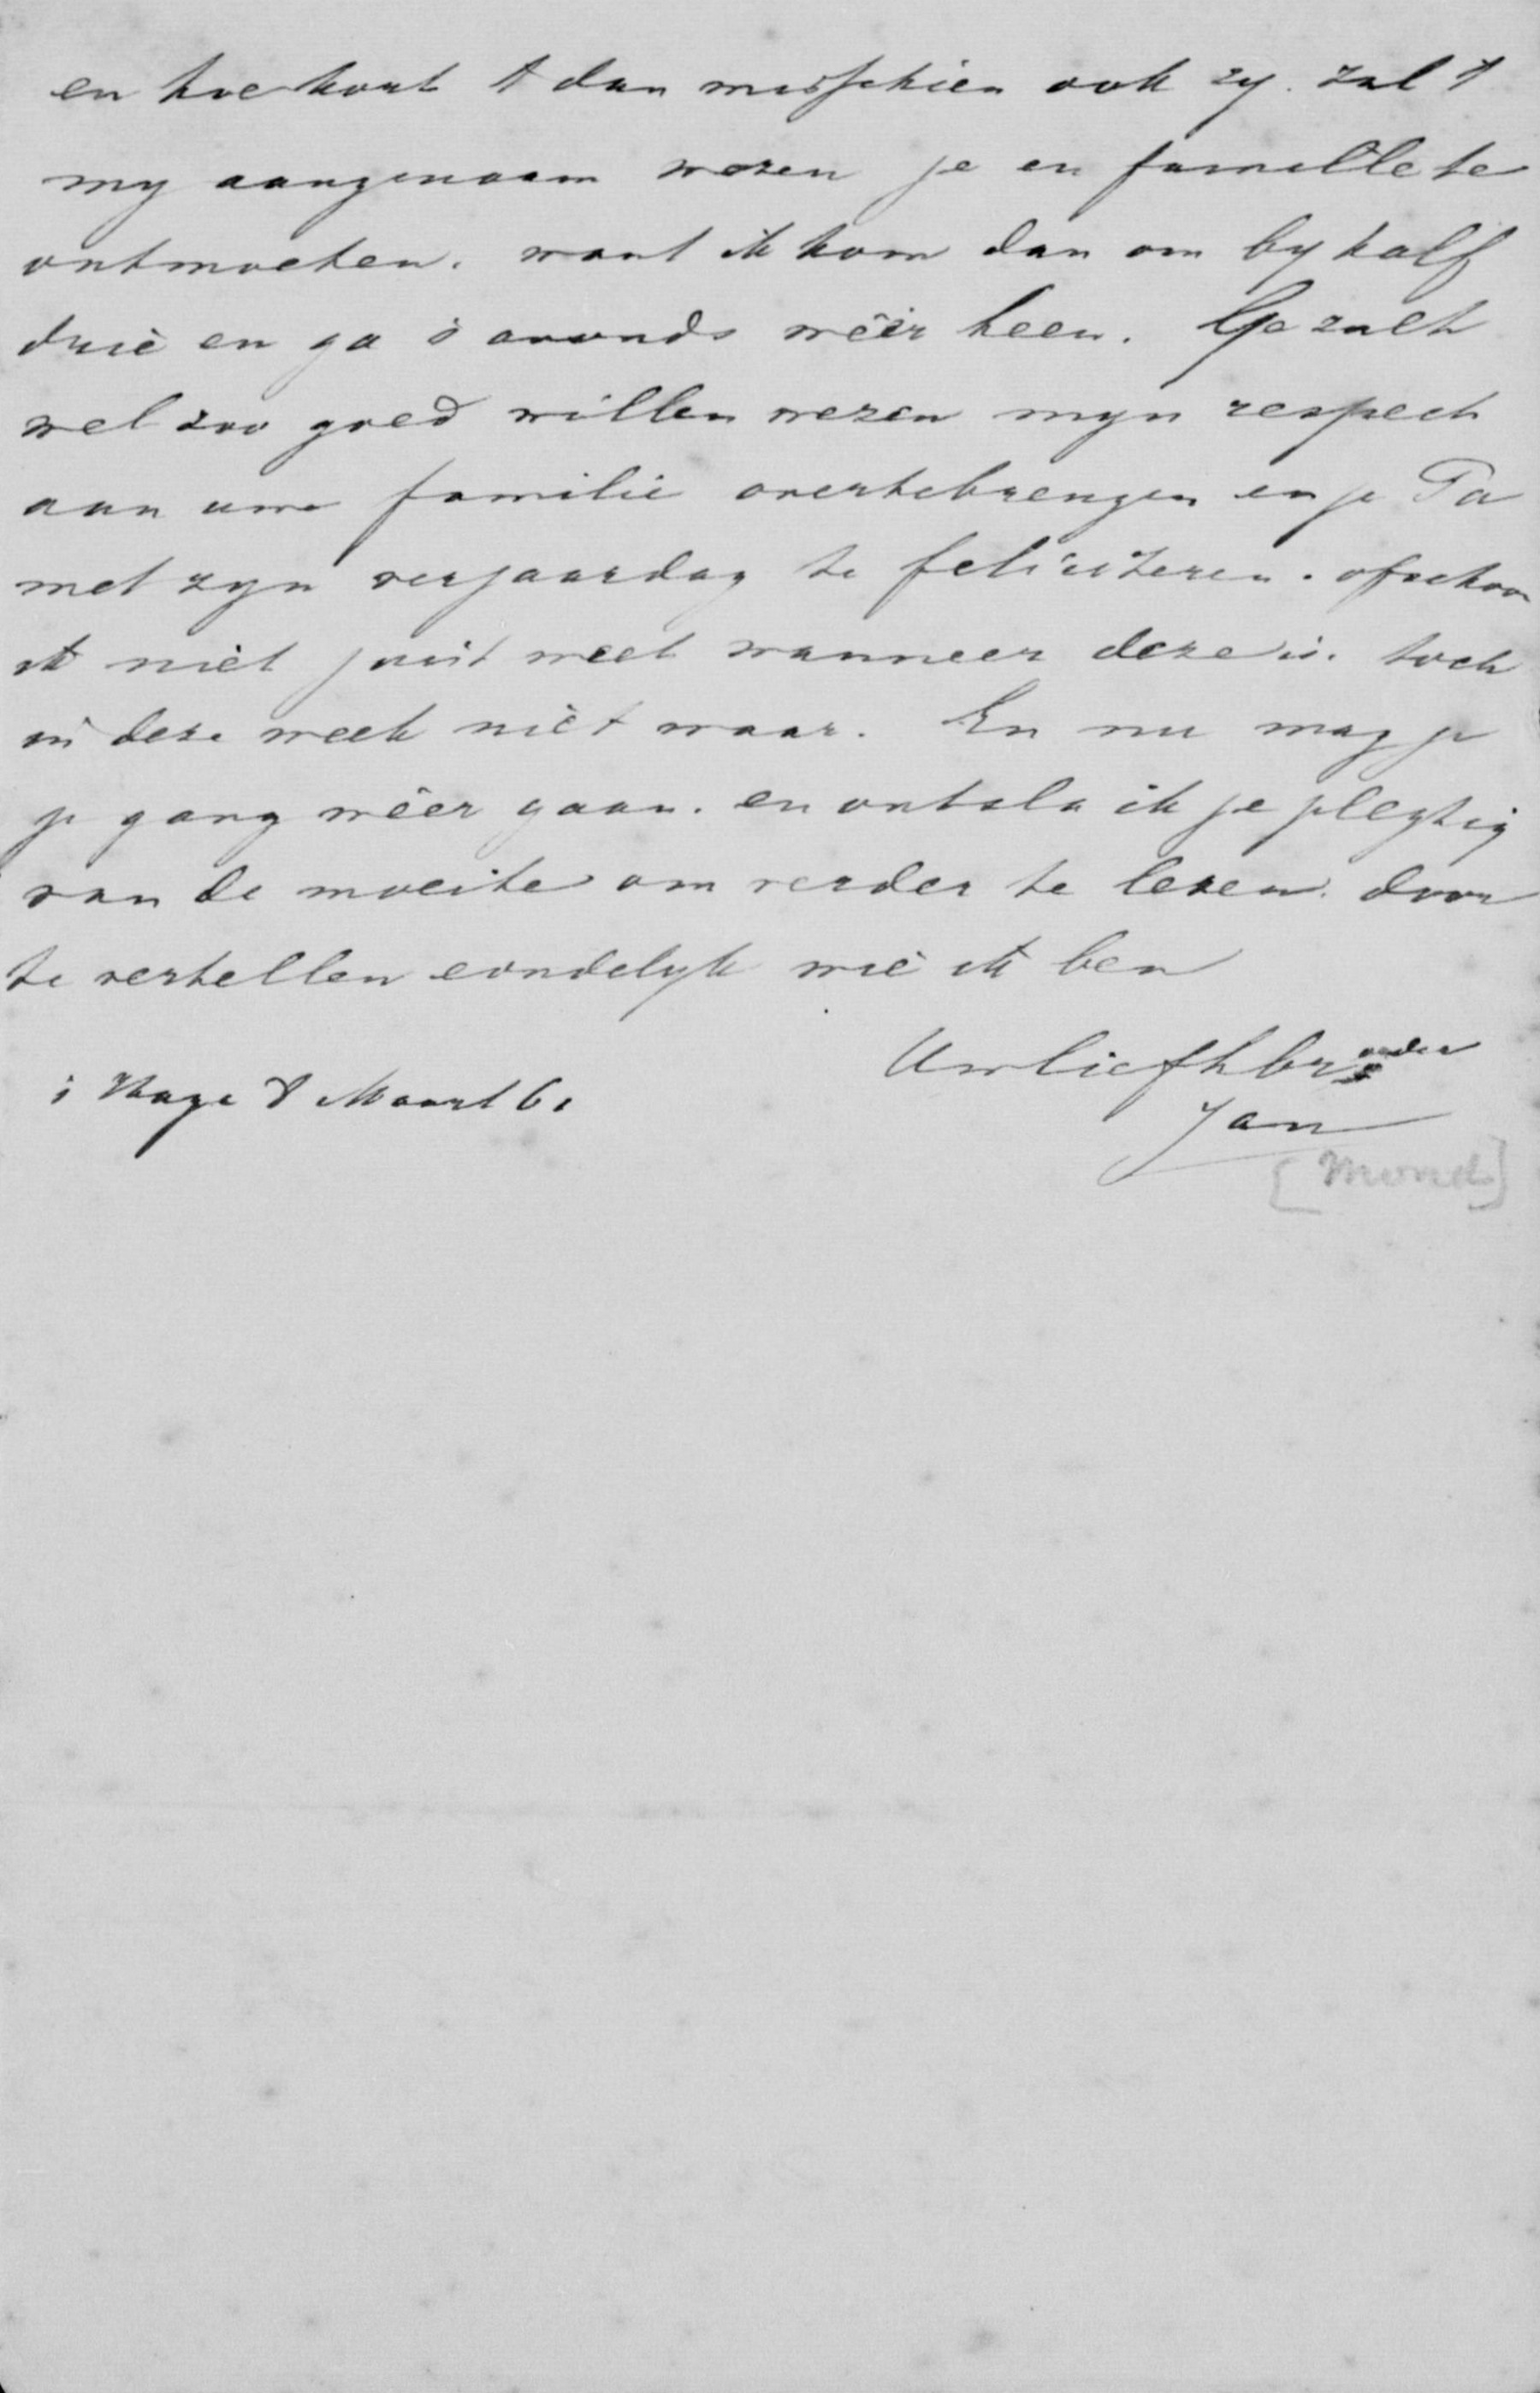 en hoe kort 't dan misschien ook zy. zal 't
my aangenaam wezen je en famille te
ontmoeten. want ik kom dan om by half
drië en ga s avonds wêer heen. Ge zult
wel zoo goed willen wezen myn respect
aan uwe familie overtebrengen en je Pa
met zyn verjaardag te feliciteren. ofschoon
ik niet juist weet wanneer deze is. toch
in deze week niet waar. En nu mag je
je gang wêer gaan. en ontsla ik je plegtig
van de moeite om verder te lezen. door
te vertellen eondelyk wie ik ben
Uw liefh broeder
s Hage 8 Maart 61
Jan
[Mond]